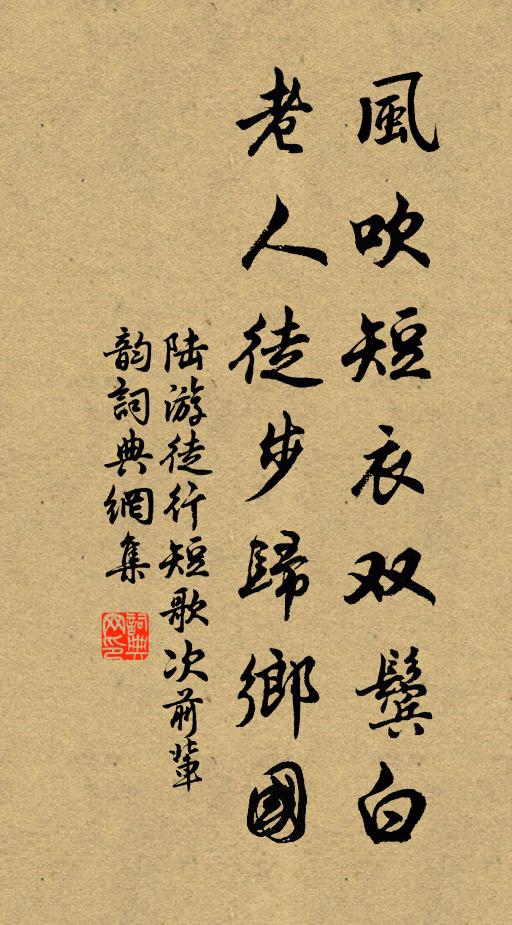 風吹短衣双鬓白
老人徒步歸鄉國
陆游徒行短歌次前輩
韵詞典網集
詞典网印